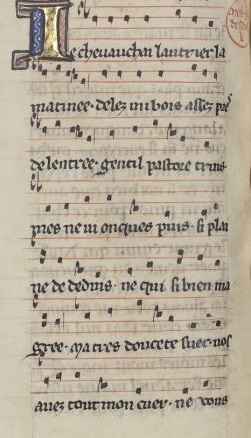 Ie cheuauchai lautrier la
matinee· delez un bois assez pres
de lentree· gentil pastore truis·
mes ne ui onques puis· si plai
ne de deduis· ne qui si bien ma
gree· ma tres doucete suer· uos
auez tout mon cuer· ne vous